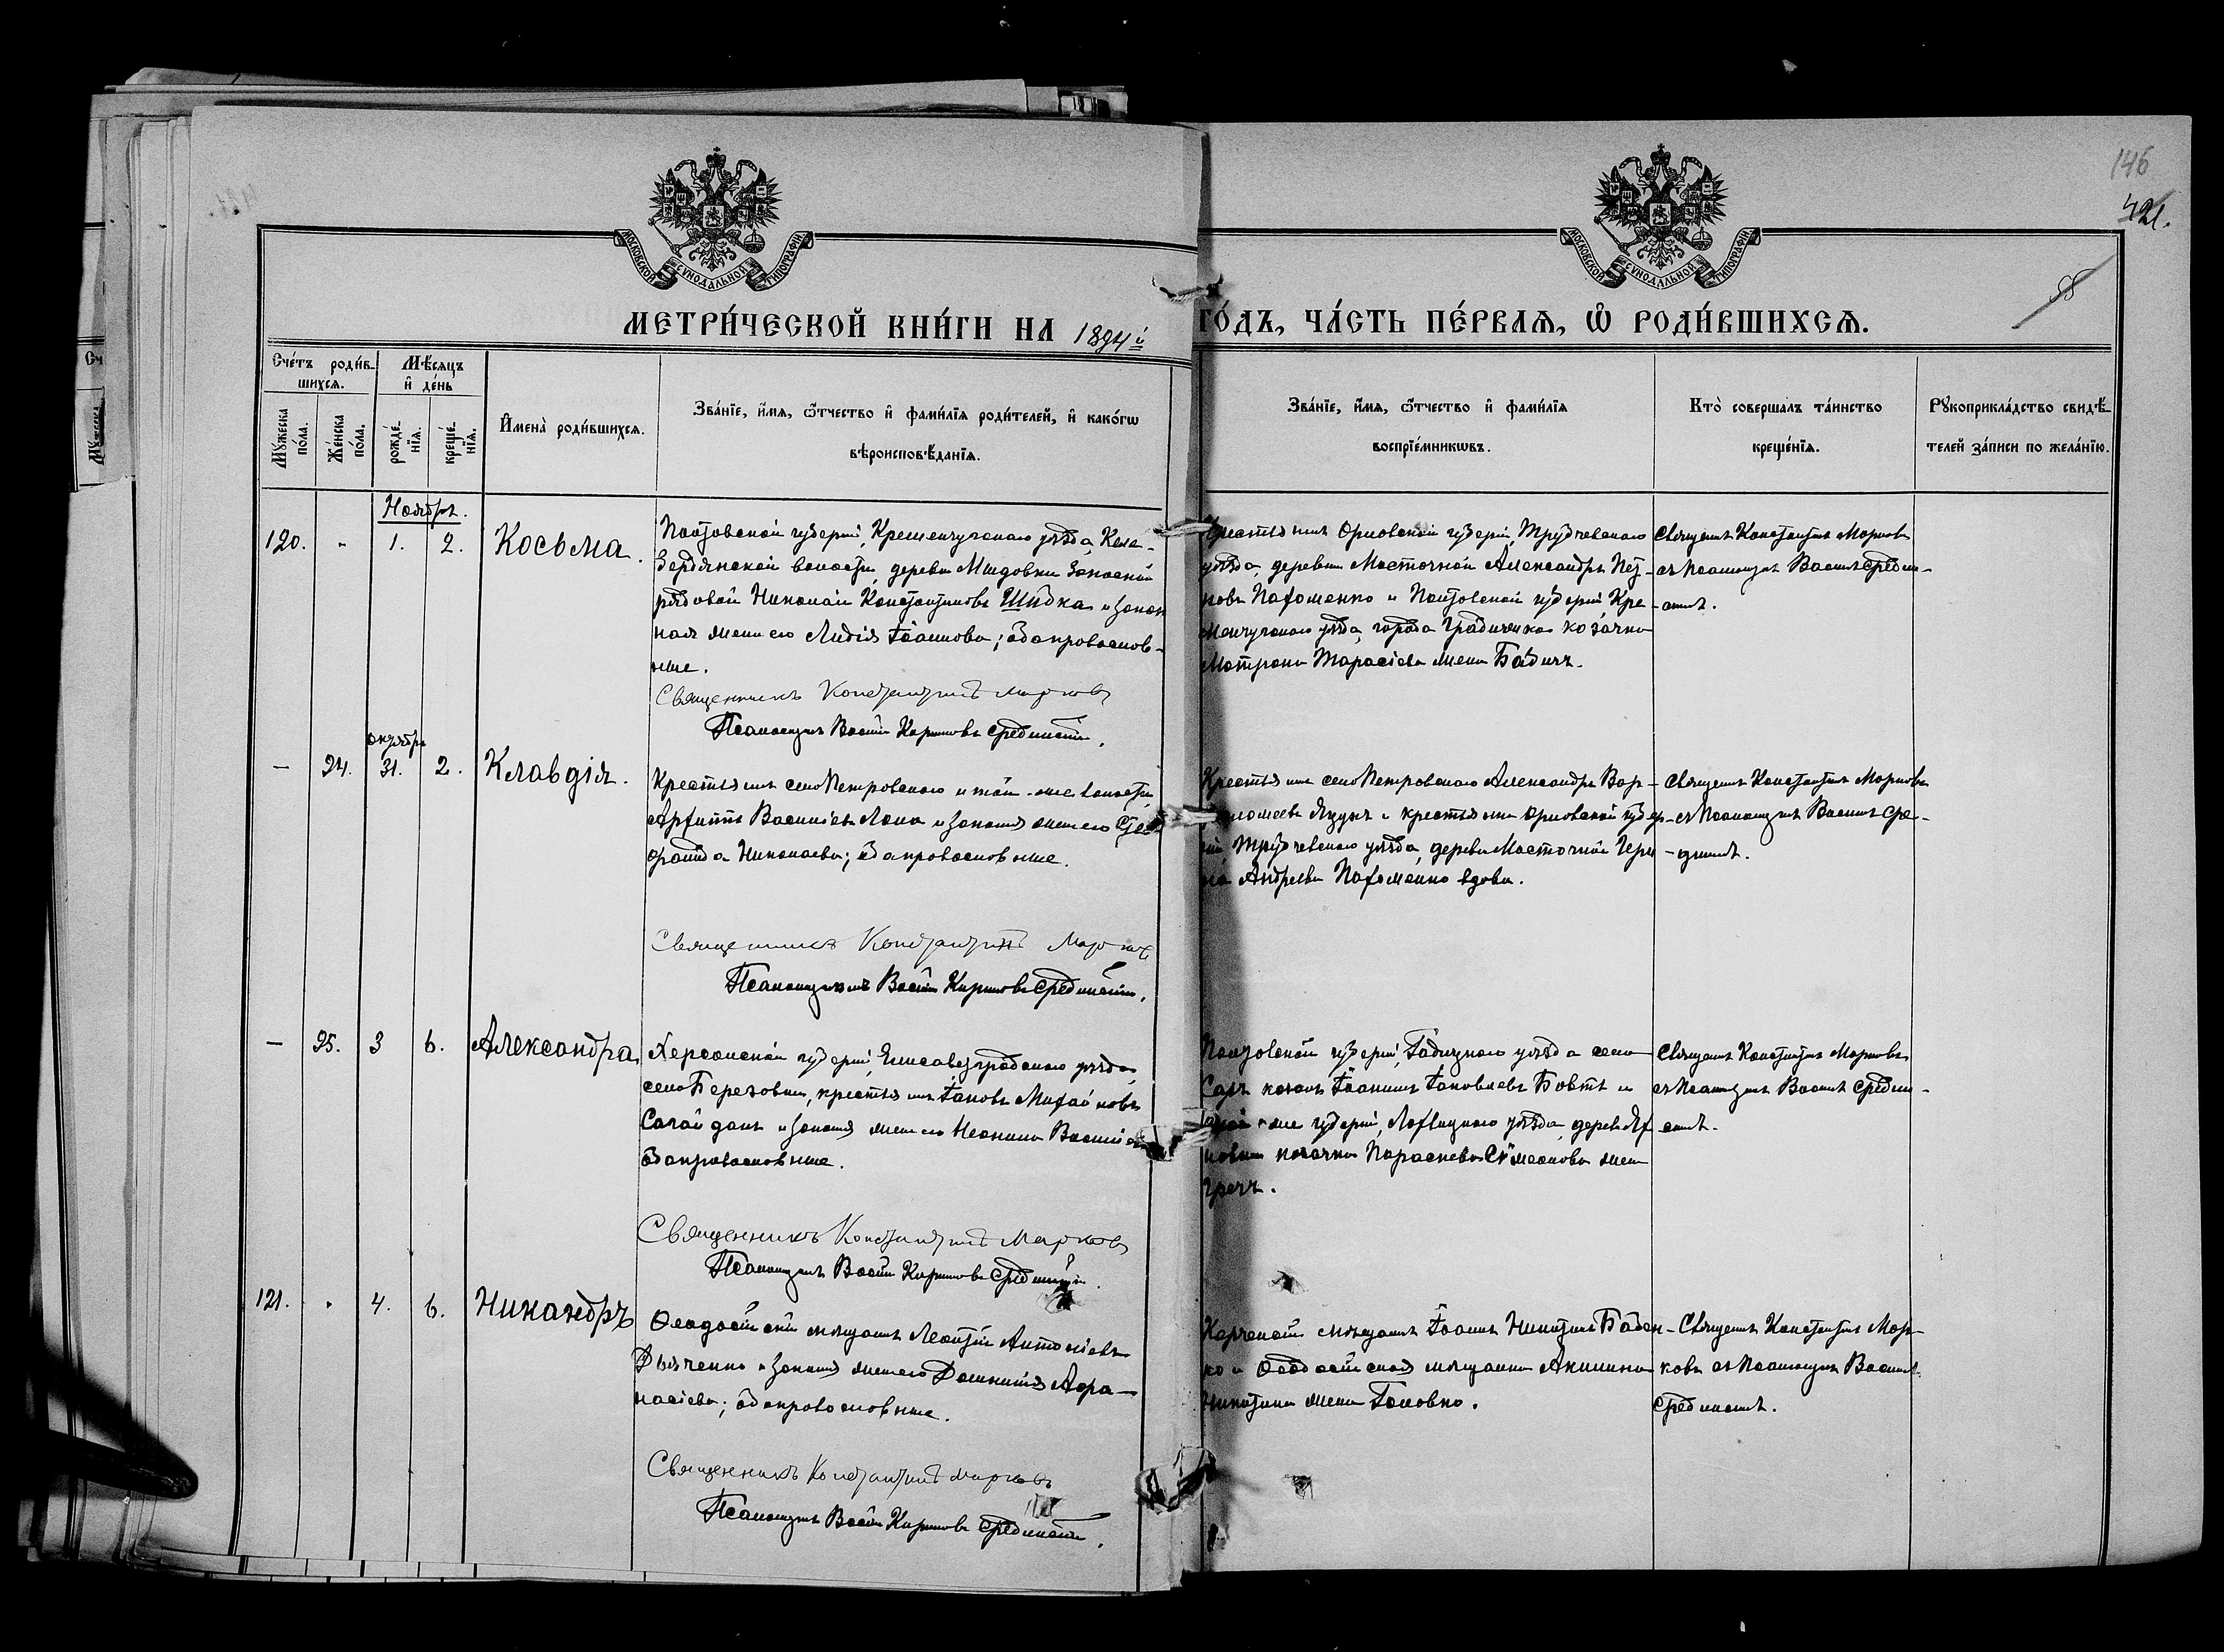 146
421.
58
МОСКОВСКОЙ СѴНОДАЛЬНОЙ ТИПОГРАФІИ
МОСКОВСКОЙ СѴНОДАЛЬНОЙ ТИПОГРАФІИ
МЕТРИ́ЧЕСКОЙ КНИ́ГИ НА 1894й ГО́ДЪ, ЧА́СТЬ ПЕ́РВАѦ, Ѡ РОДИ́ВШИХСѦ.
Сче́тъ роди́в-
шихсѧ.
Мѣ́сѧцъ
и де́нь
Мꙋ́жеска
по́ла.
Же́нска
по́ла.
рожде́-
нїѧ.
креще́-
нїѧ.
Имена̀ роди́вшихсѧ.
Зва́нїе, и́мѧ, ѻ́тчество и фами́лїѧ роди́телей, и како́гѡ
вѣроисповѣ́данїѧ.
Зва́нїе, и́мѧ, ѻ́тчество и фами́лїѧ
воспрїе́мникѡвъ.
Кто̀ совершалъ та́инство
креще́нїѧ.
Рꙋкоприкла́дство свидѣ́-
телей за́писи по жела́нїю.
Ноябрь.
120. - 1. 2. Косьма.
Полтовской губерніи, Кременчугскаго уѣзда, Келе-
бердянской волости, деревни запасный
рядовой Николай Константиновъ Шидка и закон
ная жена его Лидія Іоаннова; оба православ-
ные.
Священникъ Константинъ Марковъ
Псаломщикъ Василій Кириловъ Срединскій.
Крестьянинъ Орловской губерніи, Трубчевскаго
уѣзда, деревни Мосточной Александръ Пет-
ровъ Пафоменко и Полтовской губерніи, Кре-
менчугскаго уѣзда, города Градижска козачка
Матрона Тарасіева жена Бабичъ.
Священникъ Константинъ Марковъ
съ Псаломщикомъ Василіемъ Средин-
скимъ.
Октябрь
— 24. 31. 2. Клавдія.
Крестьянинъ села Петровскаго и той-же волости
Василіевъ Лата и законная жена его
Николаева; оба православные.
Священникъ Константинъ Марковъ
Псаломщикъ Василій Кириловъ Срединскій.
Крестьянинъ села Петровскаго Александръ Вар-
ломеевъ Яцунъ и крестьянка Орловской губер-
ніи Трубчевскаго уѣзда, деревни Мосточной
Андреева Пафоменко вдова.
Священникъ Константинъ Марковъ
съ Псаломщикомъ Василіемъ Сре-
динскимъ.
— 25. 3 6. Александра
Херсонской губерніи, Елисаветградскаго уѣзда,
села Березовки, крестьянинъ Іаковъ Михайловъ
Салайданъ и законная жена его Неонила Василіева
оба православные.
Священникъ Константинъ Марковъ
Псаломщикъ Василій Кириловъ Срединскій.
Полтовской губерніи, Гадячскаго уѣзда села
Сары козакъ Іоаннъ Іаковлевъ Бовтъ и
той-же губерніи, Лохвицкаго уѣзда, деревни
козачка Параскева Сѵмеонова жена
Гречъ.
Священникъ Константинъ Марковъ
съ Псаломщикомъ Василіемъ Средин-
скимъ.
121. - 4. 6. Никандръ
Ѳеодосійскій мѣщанинъ Леонтій Антоніевъ
Дьяченко и законная жена его Домникія Аѳа-
насіева; оба православные.
Священникъ Константинъ Марковъ
Псаломщикъ Василій Кириловъ Срединскій.
Керченскій мѣщанинъ Іоаннъ Никитинъ Бабен-
ко и Ѳеодосійская мѣщанка Акилина
Никитина жена Головко.
Священникъ Константинъ Мар-
ковъ съ Псаломщикомъ Василіемъ
Срединскимъ.